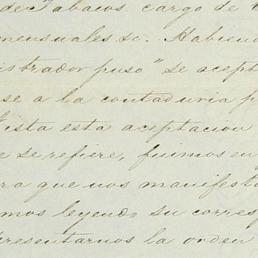 de Tabacos, cargo de
mensuales &c. Habien
istrador puso" se acept
se a la contaduría p
Vista esta aceptacion
e se refiere, fuimos en
ra que nos manifesta
mos leyendo su corres
presentarnos la orden